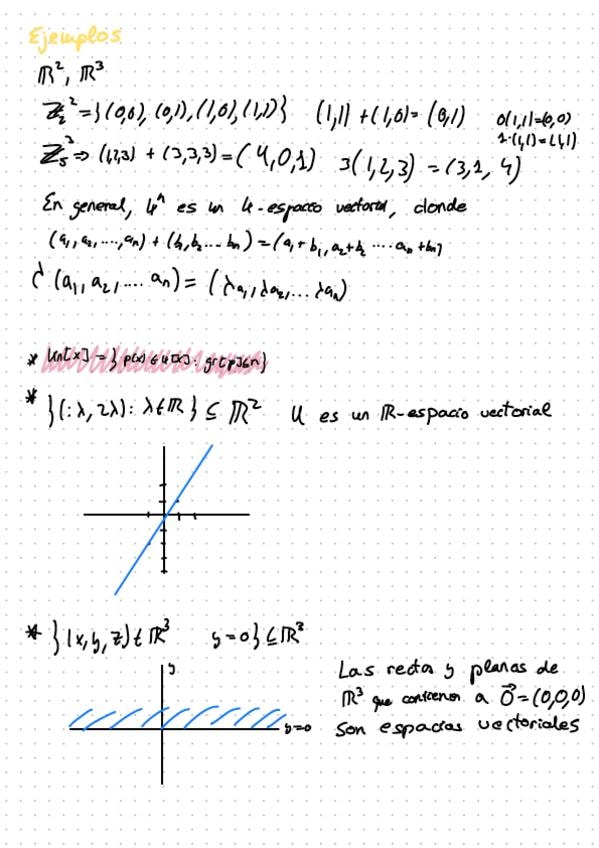 Ejemplos
ℝ², ℝ³
ℤ₂² = {(0,0), (0,1), (1,0), (1,1)} (1,1) + (1,0) = (0,1) 0(1,1)=(0,0)
1·(1,1)=(1,1)
ℤ₅³ ⇒ (1,2,3) + (3,3,3) = (4,0,1) 3(1,2,3) = (3,1,4)
En general, 𝕂ⁿ es un 𝕂-espacio vectorial, donde
(a₁, a₂, ...., aₙ) + (b₁, b₂ ... bₙ) = (a₁ + b₁, a₂+b₂ .... aₙ + bₙ)
λ (a₁, a₂, .... aₙ) = (λa₁, λa₂, ... λaₙ)
* 𝕂ₙ[x] = {p(x) ∈ 𝕂[x] : gr(p)≤n}
* {(:λ, 2λ) : λ∈ℝ} ⊆ ℝ² U es un ℝ-espacio vectorial
* {(x, y, z) ∈ ℝ³ y=0} ⊆ ℝ³
y
y=0
Las rectas y planas de
ℝ³ que contienen a 0⃗ = (0,0,0)
son espacias vectoriales